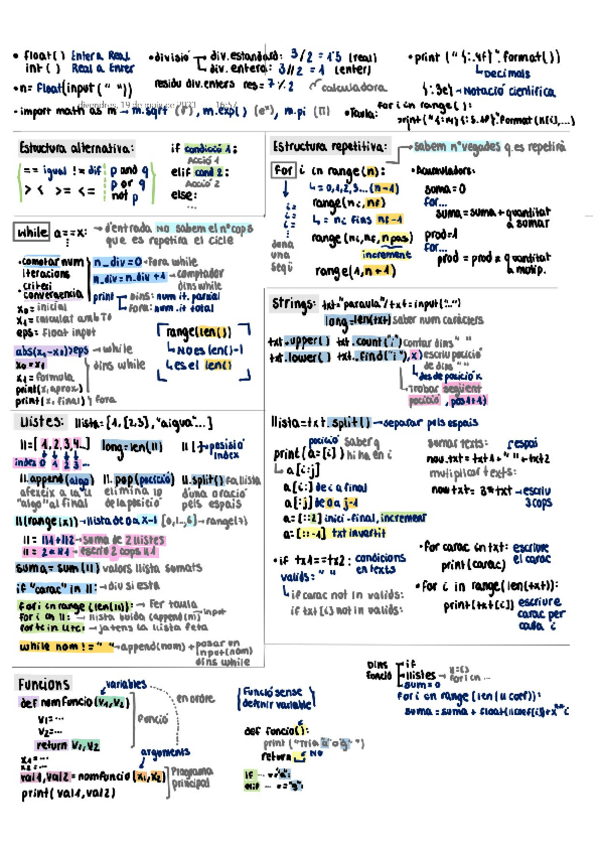 • float() Enter a Real
int() Real a Enter
• n= float(input(" "))
• divisió div. estandard: 3/2 = 1'5 (real)
div. entera: 3//2 = 1 (enter)
residu div. enters res= 7%2 calculadora
• print ("{:.4f}".format())
Decimals
{:.3e} → Notació científica
divendres, 19 de maig de 2023
• import math as m → m.sqrt (√), m.exp() (eˣ), m.pi (π)
• Taula: for i in range():
Estructura alternativa:
== igual != dif
> < >= <=
p and q
p or q
not p
if condició 1:
Acció 1
elif cond 2:
Acció 2
else:
...
Estructura repetitiva: → sabem nº vegades q. es repetirà
for i in range(n):
↳ = 0,1,2,3...(n-1)
range(ni, nf)
↳ = ni fins nf-1
range(ni, nf, npas)
increment
range(1, n+1)
• Acumuladors:
suma=0
for...
suma=suma+quantitat
a sumar
prod=1
for...
prod = prod * quantitat
a multip.
while a==x: → d'entrada NO sabem el nº cops
que es repetirà el cicle
• comptar num
iteracions
• criteri
convergencia
n_div=0 → fora while
n_div=n_div+1 → comptador
dins while
print dins: num it. parcial
fora: num it. total
x0= inicial
x1= calculat amb x0
eps= float input
abs(x1-x0)>eps → while
x0=x1
x1= formula
print(x, aprox)
dins while
print(x, final) fora
range(len())
↳ NO es len()-1
↳ es el len()
Strings: txt="paraula"/txt=input("..")
long=len(txt) saber num caràcters
txt.upper() txt.count(",") contar dins " "
txt.lower() txt.find("i",x) escriu posició
de dins " "
↳ des de posició x
↳ Trobar següent
posició , pos1+1)
Llistes: llista=[1,[2,3],"aigua"...]
ll=[1,2,3,4..] long=len(ll) ll[ ] → posició
index
index 0 1 2 3 ...
ll.append(algo) ll.pop(posició) ll.split() fa llista
afegeix a la ll
"algo" al final
elimina lo
de la posició
d'una oració
pels espais
ll(range(x)) → llista de 0 a x-1 [0,1..,6] → range(7)
ll = ll1+ll2 → suma de 2 llistes
ll = 2*ll1 → escriu 2 cops ll1
suma = sum(ll) valors llista sumats
if "carac" in ll: → diu si està
for i in range(len(ll)): → Fer taula
for i in ll: → llista buida (append(m)) input
→ ja tens la llista feta
while nom != " " → append(nom) + posar un
input(nom)
dins while
llista=txt.split() → separar pels espais
print(a=[i]) posició saber q
hi ha en i
↳ a[i:j]
a[i:] de i a final
a[:j] de 0 a j-1
a=[::2] inici-final, increment
a=[::-1] txt invertit
sumar texts: espai
nou.txt = txt1+" "+txt2
multiplicar texts:
nou txt = 3*txt → escriu
3 cops
• if txt1==txt2: condicions
en texts
valids=" "
↳ if carac not in valids:
if txt[i] not in valids:
• for carac in txt: escriure
el carac
print(carac)
• for i in range(len(txt)):
print(txt[i]) escriure
carac per
cada i
Funcions variables
def nom funcio (v1,v2) en ordre
v1=...
v2=...
return v1, v2
Funció
x1=...
x2=...
arguments
val1,val2 = nomfuncio(x1,x2)
print(val1,val2)
Programa
principal
Funció sense
definir variable
def funcio():
print ("Tria a o g")
return NO
if ... = "a":
elif ... = "g":
Dins
funció
if
llistes → ll=[]
for i in ...
sum=0
for i in range(len(ll coef)):